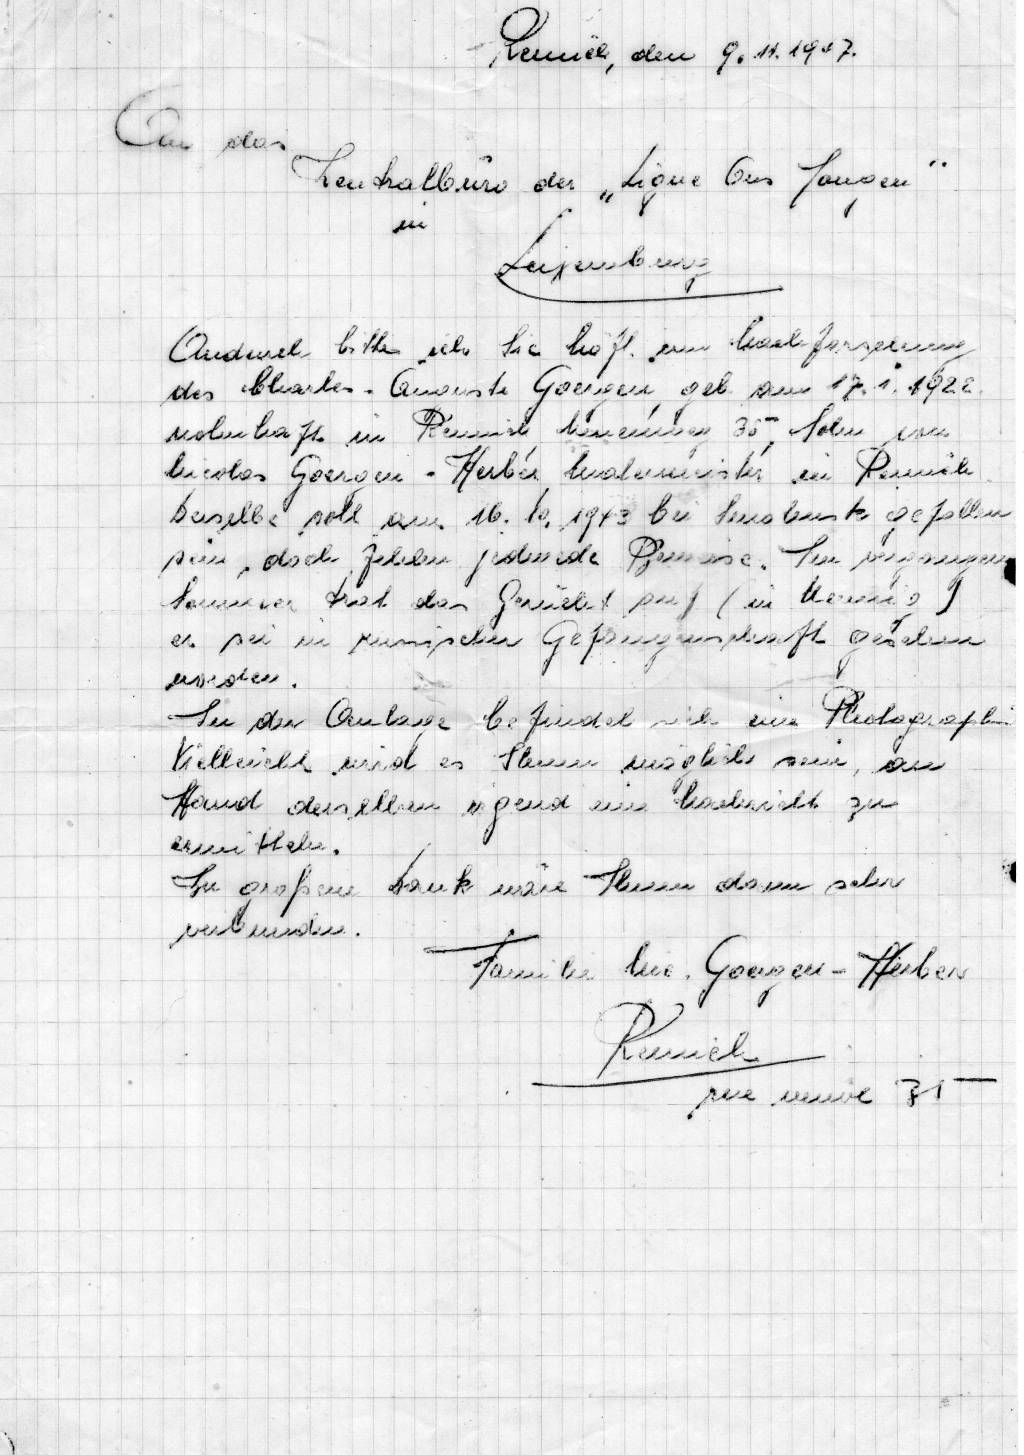 Remich, den 9.11.1947.
An das
Zentralbüro der „Ligue Ons Jongen"
in
Luxemburg
Andurch bitte ich Sie höfl. um Nachforschung
des Charles-Auguste Goergen, geb. am 17.1.1922.
wohnhaft in Remich, 35, Sohn von
Nicolas Goergen-Herber, Malermeister in Remich.
Derselbe soll am 16.10.1943 bei Smolensk gefallen
sein, doch fehlen jedwede Beweise. Im vergangenen
Sommer trat das Gerücht auf (in Nennig)
er sei in russischer Gefangenschaft gesehen
worden.
In der Anlage befindet sich eine Photographie
Vielleicht wird es Ihnen möglich sein, an
Hand derselben irgend eine Nachricht zu
ermitteln.
Zu großem Dank wäre Ihnen dann sehr
verbunden.
Familie Nic. Goergen-Herber
Remich
rue neuve 35